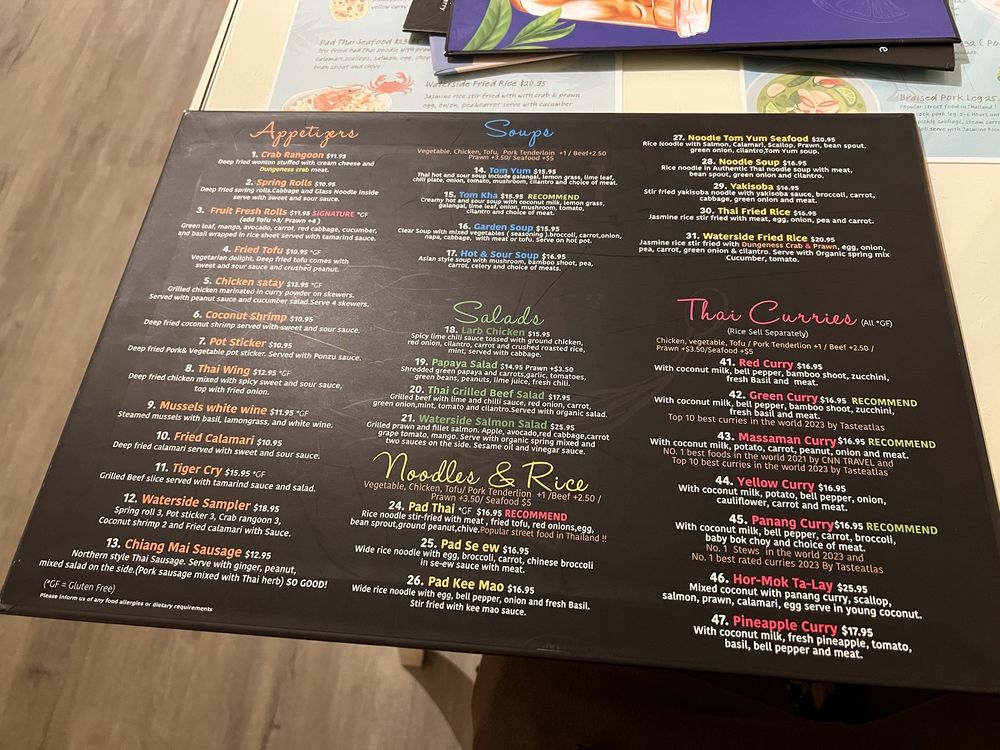 Pad Thai Seafood
Stir fried Pad Thai noodle with prawn
calamari, scallops, salmon, egg, chop
bean spout and chive
Waterside Fried Rice $20.95
Jasmine rice stir fried with with crab & prawn
egg, onion, pea&carrot serve with cucumber
Braised Pork Leg 25
Popular street food in Thailand !
Appetizers
1. Crab Rangoon $11.95
Deep fried wonton stuffed with cream cheese and
Dungeness crab meat.
2. Spring Rolls $10.95
Deep fried spring rolls.Cabbage and Glass Noodle inside
serve with sweet and sour sauce.
3. Fruit Fresh Rolls $11.95 SIGNATURE *GF
(add Tofu +3/ Prawn +4 )
Green leaf, mango, avocado, carrot, red cabbage, cucumber,
and basil wrapped in rice sheet served with tamarind sauce.
4. Fried Tofu $10.95 *GF
Vegetarian delight. Deep fried tofu comes with
sweet and sour sauce and crushed peanut.
5. Chicken satay $12.95 *GF
Grilled chicken marinated in curry powder on skewers.
Served with peanut sauce and cucumber salad.Serve 4 skewers.
6. Coconut Shrimp $10.95
Deep fried coconut shrimp served with sweet and sour sauce.
7. Pot Sticker $10.95
Deep fried Pork& Vegetable pot sticker. Served with Ponzu sauce.
8. Thai Wing $12.95 *GF
Deep fried chicken mixed with spicy sweet and sour sauce,
top with fried onion.
9. Mussels white wine $11.95 *GF
Steamed mussels with basil, lemongrass, and white wine.
10. Fried Calamari $10.95
Deep fried calamari served with sweet and sour sauce.
11. Tiger Cry $15.95 *GF
Grilled Beef slice served with tamarind sauce and salad.
12. Waterside Sampler $18.95
Spring roll 3, Pot sticker 3, Crab rangoon 3,
Coconut shrimp 2 and Fried calamari with Sauce.
13. Chiang Mai Sausage $12.95
Northern style Thai Sausage. Serve with ginger, peanut,
mixed salad on the side.(Pork sausage mixed with Thai herb) SO GOOD!
(*GF = Gluten Free)
Please inform us of any food allergies or dietary requirements
Soups
Vegetable, Chicken, Tofu, Pork Tenderloin +1 / Beef+2.50
Prawn +3.50/ Seafood +$5
14. Tom Yum $15.95
Thai hot and sour soup include galangal, lemon grass, lime leaf,
chili plate, onion, tomato, mushroom, cilantro and choice of meat.
15. Tom Kha $15.95 RECOMMEND
Creamy hot and sour soup with coconut milk, lemon grass,
galangal, lime leaf, onion, mushroom, tomato,
cilantro and choice of meat.
16. Garden Soup $15.95
Clear Soup with mixed vegetables ( seasoning ).broccoli, carrot,onion,
napa, cabbage, with meat or tofu. Serve on hot pot.
17. Hot & Sour Soup $16.95
Asian style soup with mushroom, bamboo shoot, pea,
carrot, celery and choice of meats.
Salads
18. Larb Chicken $15.95
Spicy lime chili sauce tossed with ground chicken,
red onion, cilantro, carrot and crushed roasted rice,
mint, served with cabbage.
19. Papaya Salad $14.95 Prawn +$3.50
Shredded green papaya and carrots,garlic, tomatoes,
green beans, peanuts, lime juice, fresh chili.
20. Thai Grilled Beef Salad $17.95
Grilled beef with lime and chilli sauce, red onion, carrot,
green onion,mint, tomato and cilantro.Served with organic salad.
21. Waterside Salmon Salad $25.95
Grilled prawn and fillet salmon. Apple, avocado,red cabbage,carrot
grape tomato, mango. Serve with organic spring mixed and
two sauces on the side. Sesame oil and vinegar sauce.
Noodles & Rice
Vegetable, Chicken, Tofu/ Pork Tenderlion +1 /Beef +2.50 /
Prawn +3.50/ Seafood $5
24. Pad Thai *GF $16.95 RECOMMEND
Rice noodle stir-fried with meat , fried tofu, red onions,egg,
bean sprout,ground peanut,chive.Popular street food in Thailand !!
25. Pad Se ew $16.95
Wide rice noodle with egg, broccoli, carrot, chinese broccoli
in se-ew sauce with meat.
26. Pad Kee Mao $16.95
Wide rice noodle with egg, bell pepper, onion and fresh Basil.
Stir fried with kee mao sauce.
27. Noodle Tom Yum Seafood $20.95
Rice Noodle with Salmon, Calamari, Scallop, Prawn, bean spout,
green onion, cilantro,Tom Yum soup.
28. Noodle Soup $16.95
Rice noodle in Authentic Thai noodle soup with meat,
bean spout, green onion and cilantro.
29. Yakisoba $16.95
Stir fried yakisoba noodle with yakisoba sauce, broccoli, carrot,
cabbage, onion, green onion and meat.
30. Thai Fried Rice $16.95
Jasmine rice stir fried with meat, egg, onion, pea and carrot.
31. Waterside Fried Rice $20.95
Jasmine rice stir fried with Dungeness Crab & Prawn, egg, onion,
pea, carrot, green onion & cilantro. Serve with Organic spring mix
Cucumber, tomato.
Thai Curries (All *GF)
(Rice Sell Separately)
Chicken, vegetable, Tofu / Pork Tenderlion +1 / Beef +2.50 /
Prawn +$3.50/Seafood +$5
41. Red Curry $16.95
With coconut milk, bell pepper, bamboo shoot, zucchini,
fresh Basil and meat.
42. Green Curry $16.95 RECOMMEND
With coconut milk, bell pepper, bamboo shoot, zucchini,
fresh basil and meat.
Top 10 best curries in the world 2023 by Tasteatlas
43. Massaman Curry$16.95 RECOMMEND
With coconut milk, potato, carrot, peanut, onion and meat.
NO. 1 best foods in the world 2021 by CNN TRAVEL and
Top 10 best curries in the world 2023 by Tasteatlas
44. Yellow Curry $16.95
With coconut milk, potato, bell pepper, onion,
cauliflower, carrot and meat.
45. Panang Curry$16.95 RECOMMEND
With coconut milk, bell pepper, carrot, broccoli,
baby bok choy and choice of meat.
No. 1 Stews in the world 2023 and
No. 1 best rated curries 2023 By Tasteatlas
46. Hor-Mok Ta-Lay $25.95
Mixed coconut with panang curry, scallop,
salmon, prawn, calamari, egg serve in young coconut.
47. Pineapple Curry $17.95
With coconut milk, fresh pineapple, tomato,
basil, bell pepper and meat.